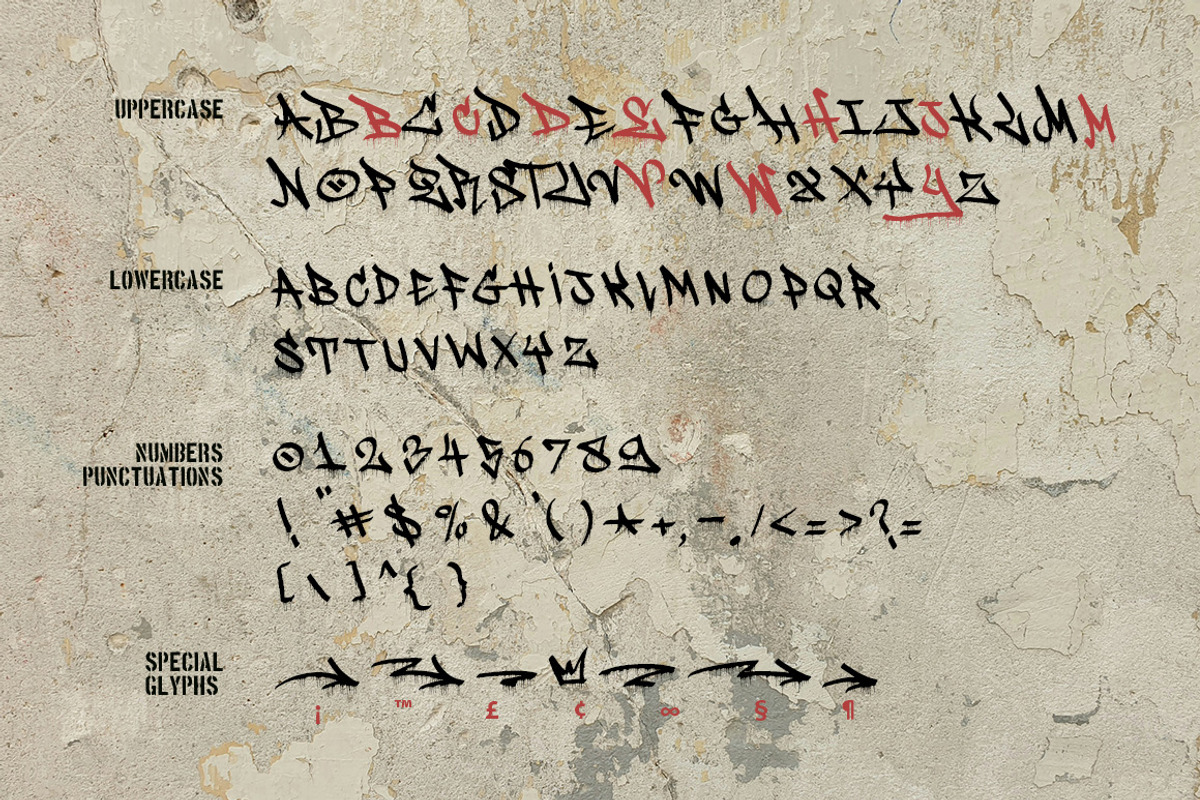 UPPERCASE
ABBCCDDEEFGHHIJJKLMM
NOPQRSTUVVWWXXYYZ
LOWERCASE
ABCDEFGHIJKLMNOPQR
STTUVWXYZ
NUMBERS
PUNCTUATIONS
0123456789
!"#$%&'()*+,-./<=>?=
[\]^{}
SPECIAL
GLYPHS
¡ ™ £ ¢ ∞ § ¶